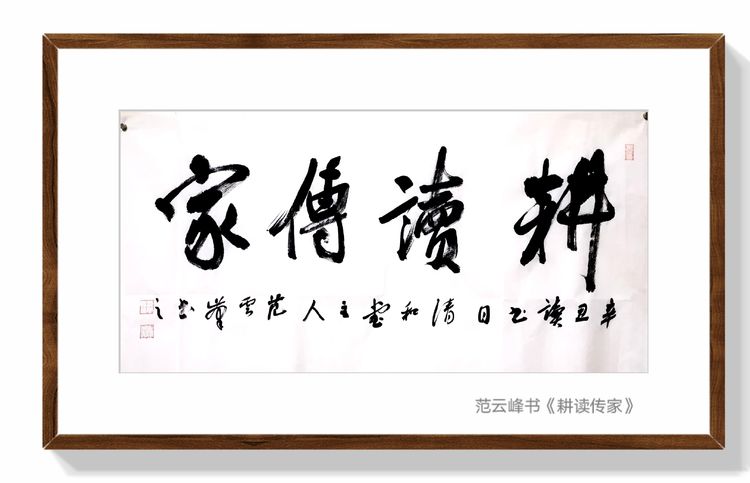 耕讀傳家
辛丑讀书日清和堂主人范雲峯书之
范云峰书《耕读传家》